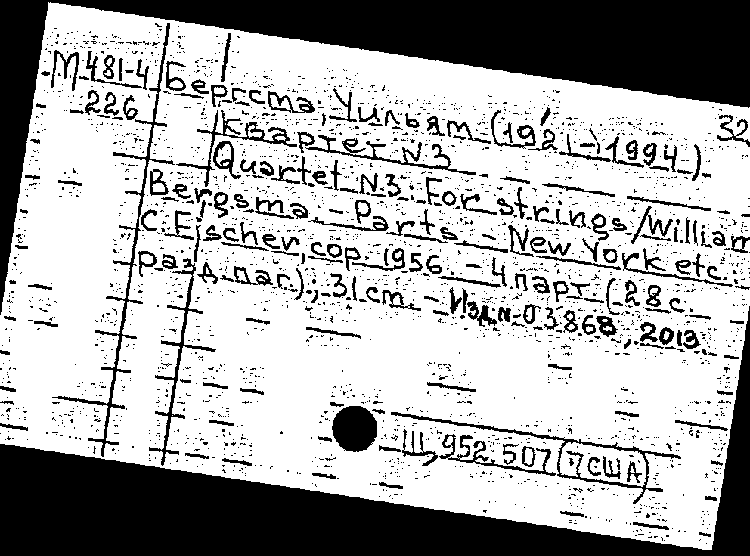 М 481-4
226
32
Бергсма, Уильям (1921-1994).
Квартет N3
Quartet N3: For strings/William
Bergsma. - Parts. - New York etc.:
C. Fischer, cop. 1956. - 4 парт. (28 с.
разд. паг.); 31 cm. - Изд. N-03868, 2013.
III, 952.507 (7 США)